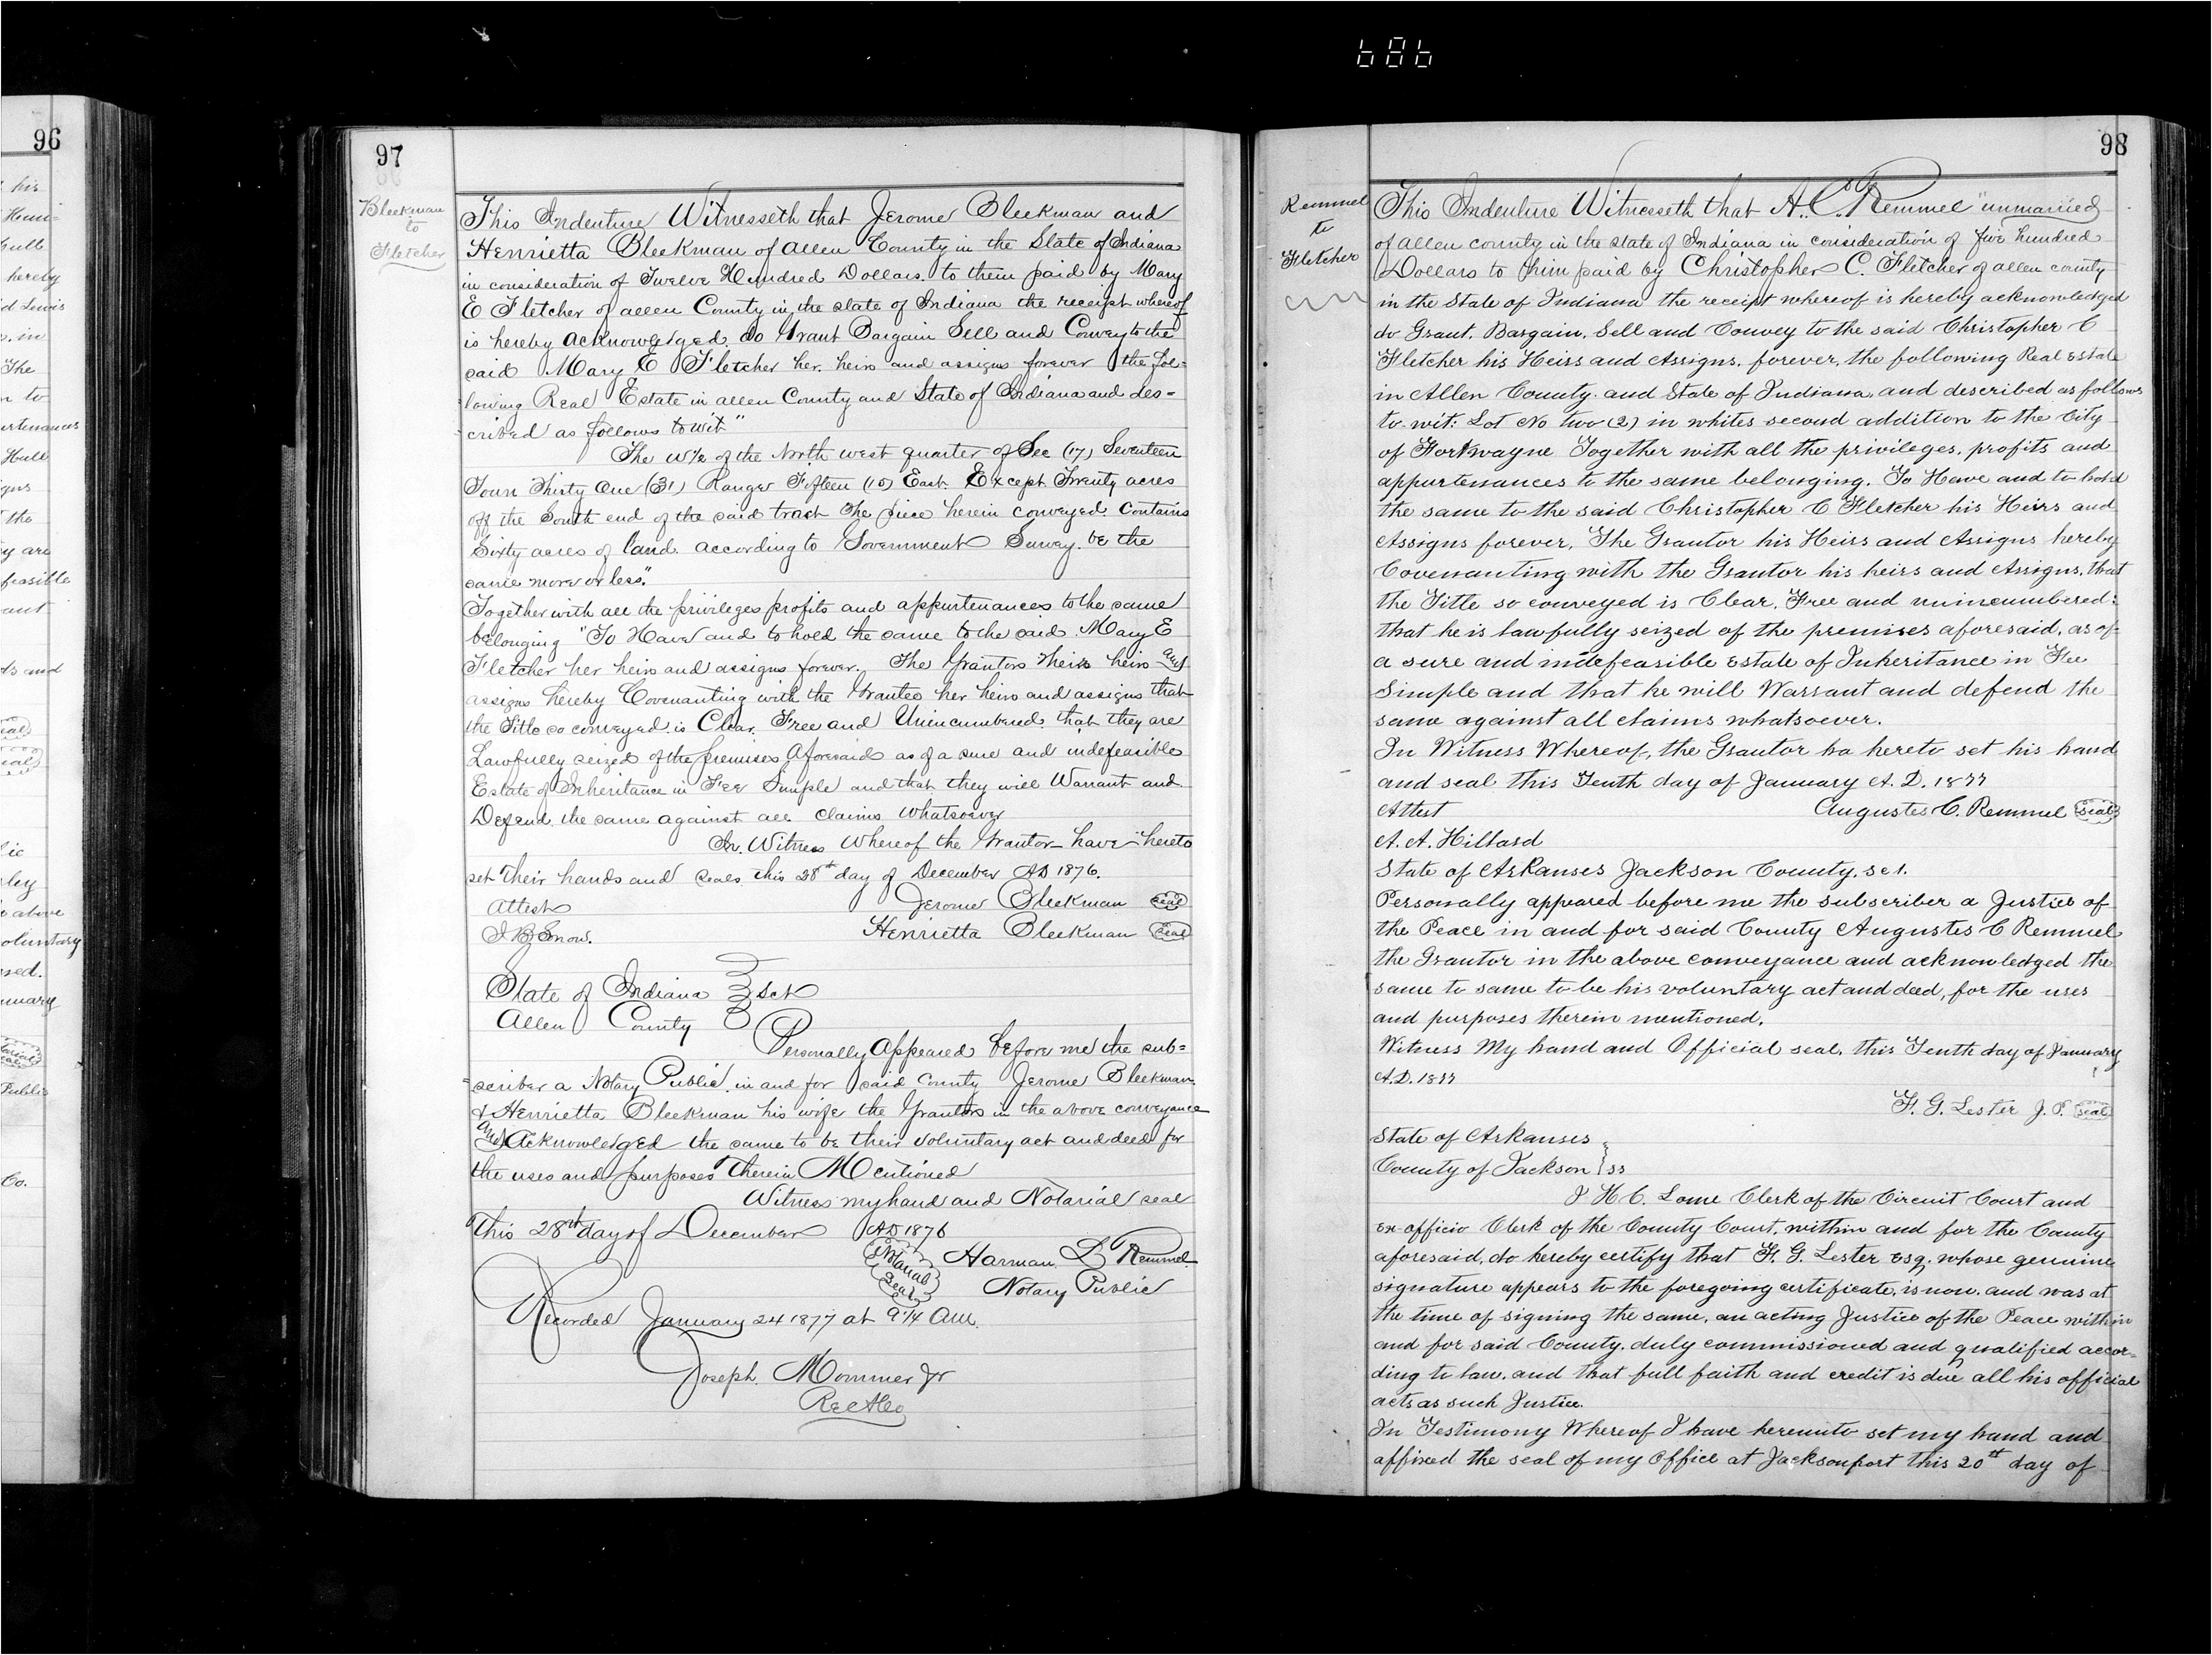 686
96
his
Hum=
hereby
d Lewis
. in
The
n to
urtenances
Hull
gns
the
y are
feasible
ant
ds and
lic
ley
e above
oluntary
sed.
nuary
Public
Co.
97
Bleekman
to
Fletcher
This Indenture Witnesseth that Jerome Bleekman and
Henrietta Bleekman of Allen County in the State of Indiana
in consideration of Twelve Hundred Dollars. to them paid by Mary
E Fletcher of allen County in the state of Indiana the receipt whereof
is hereby acknowledged, do Grant Bargain Sell and Convey to the
said Mary E Fletcher her heirs and assigns forever the fol=
lowing Real Estate in allen County and State of Indiana and des=
=cribed as follows to wit"
The W½ of the North west quarter of Sec (17) Seventeen
Town Thirty One (31) Range Fifteen (15) East. Except Twenty acres
off the South end of the said tract The piece herein conveyed Contains
Sixty acres of land. according to Government Survey. be the
same more or less".
Together with all the privileges profits and appurtenances to the same
belonging "To Have and to hold the same to the said Mary E
Fletcher her heirs and assigns forever. The Grantors theirs heirs and
assigns hereby Covenanting with the Grantee her heirs and assigns that
the Title so conveyed is Clear, Free and Unincumbered that they are
Lawfully seized of the premises Aforesaid as of a sure and indefeasible
Estate of Inheritance in Fee Simple and that they will Warrant and
Defend the same against all claims whatsoever
In Witness Whereof the Grantor have hereto
set their hands and seals this 28th day of December AD 1876.
Attest Jerome Bleekman Seal
I B Snow. Henrietta Bleekman Seal
State of Indiana } Sct
Allen County
Personally Appeared before me the sub=
=scriber a Notary Public in and for said County Jerome Bleekman
& Henrietta Bleekman his wife the Grantors in the above conveyance
and Acknowledged the same to be their voluntary act and deed for
the uses and purposes Therein Mentioned
Witness my hand and Notarial seal
This 28th day of December AD 1876
Notarial Seal Harman L Remmel
Notary Public
Recorded January 24 1877 at 9 1/4 AM.
Joseph Mommer Jr
Rec A Co
98
Remmel
to
Fletcher
This Indenture Witnesseth that A. C. Remmel "unmarried
of allen county in the state of Indiana in consideration of five hundred
Dollars to him paid by Christopher C. Fletcher of allen county
in the State of Indiana the receipt whereof is hereby acknowledged
do Grant, Bargain, Sell and Convey to the said Christopher C
Fletcher his Heirs and Assigns, forever, the following Real Estate
in Allen County and State of Indiana, and described as follows
to-wit: Lot No two (2) in whites second addition to the City
of Fort wayne Together with all the privileges, profits and
appurtenances to the same belonging. To Have and to hold
the same to the said Christopher C Fletcher his Heirs and
Assigns forever, The Grantor his Heirs and Assigns hereby
Covenanting with the Grantor his heirs and Assigns, that
the Title so conveyed is Clear, Free and unincumbered:
that he is lawfully seized of the premises aforesaid, as of
a sure and indefeasible Estate of Inheritance in Fee
Simple and that he will Warrant and defend the
same against all claims whatsoever.
In Witness Whereof, the Grantor ha hereto set his hand
and seal this Tenth day of January A. D. 1877
Attest Augustes C. Remmel Seal
A. A. Hillard
State of Arkanses Jackson County, Sct.
Personally appeared before me the subscriber a Justice of
the Peace in and for said County Augustes C Remmel
the Grantor in the above conveyance and acknowledged the
same to same to be his voluntary act and deed, for the uses
and purposes therein mentioned.
Witness My hand and Official seal, this Tenth day of January
A.D. 1877
F. G. Lester J. P. Seal
State of Arkanses
County of Jackson } ss
I H C. Lome Clerk of the Circuit Court and
ex officio Clerk of the County Court, within and for the County
aforesaid, do hereby certify that F. G. Lester Esq. whose genuine
signature appears to the foregoing certificate, is now, and was at
the time of signing the same, an acting Justice of the Peace within
and for said County, duly commissioned and qualified accor=
ding to law, and that full faith and credit is due all his official
acts as such Justice.
In Testimony Whereof I have hereunto set my hand and
affixed the seal of my Office at Jacksonport this 20th day of